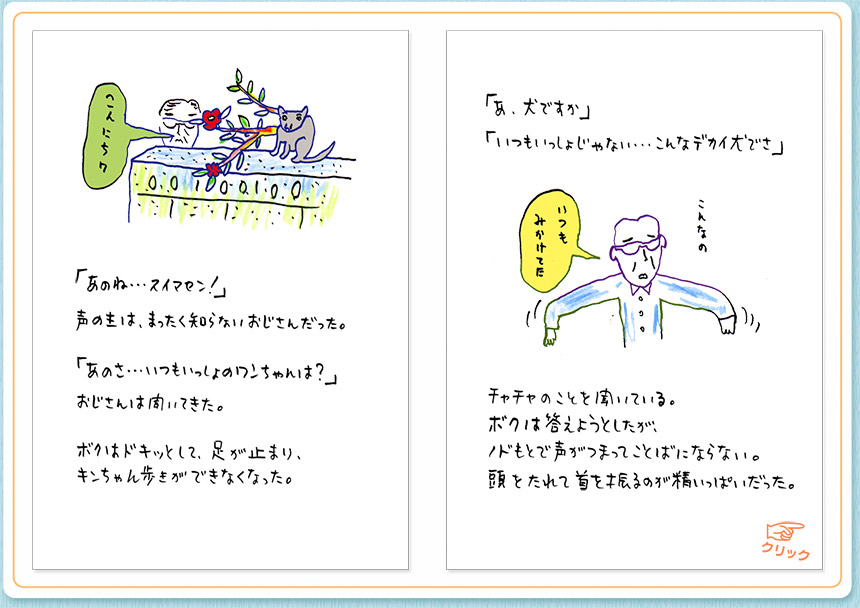 こんにちワ
「あのね…スイマセン！」
声の主は、まったく知らないおじさんだった。
「あのさ…いつもいっしょのワンちゃんは？」
おじさんは聞いてきた。
ボクはドキッとして、足が止まり、
キンちゃん歩きができなくなった。
「あ、犬ですか」
「いつもいっしょじゃない…こんなデカイ犬でさ」
こんなの
いつも
みかけてた
チャチャのことを聞いている。
ボクは答えようとしたが、
ノドもとで声がつまってことばにならない。
頭をたれて首を振るのが精いっぱいだった。
クリック